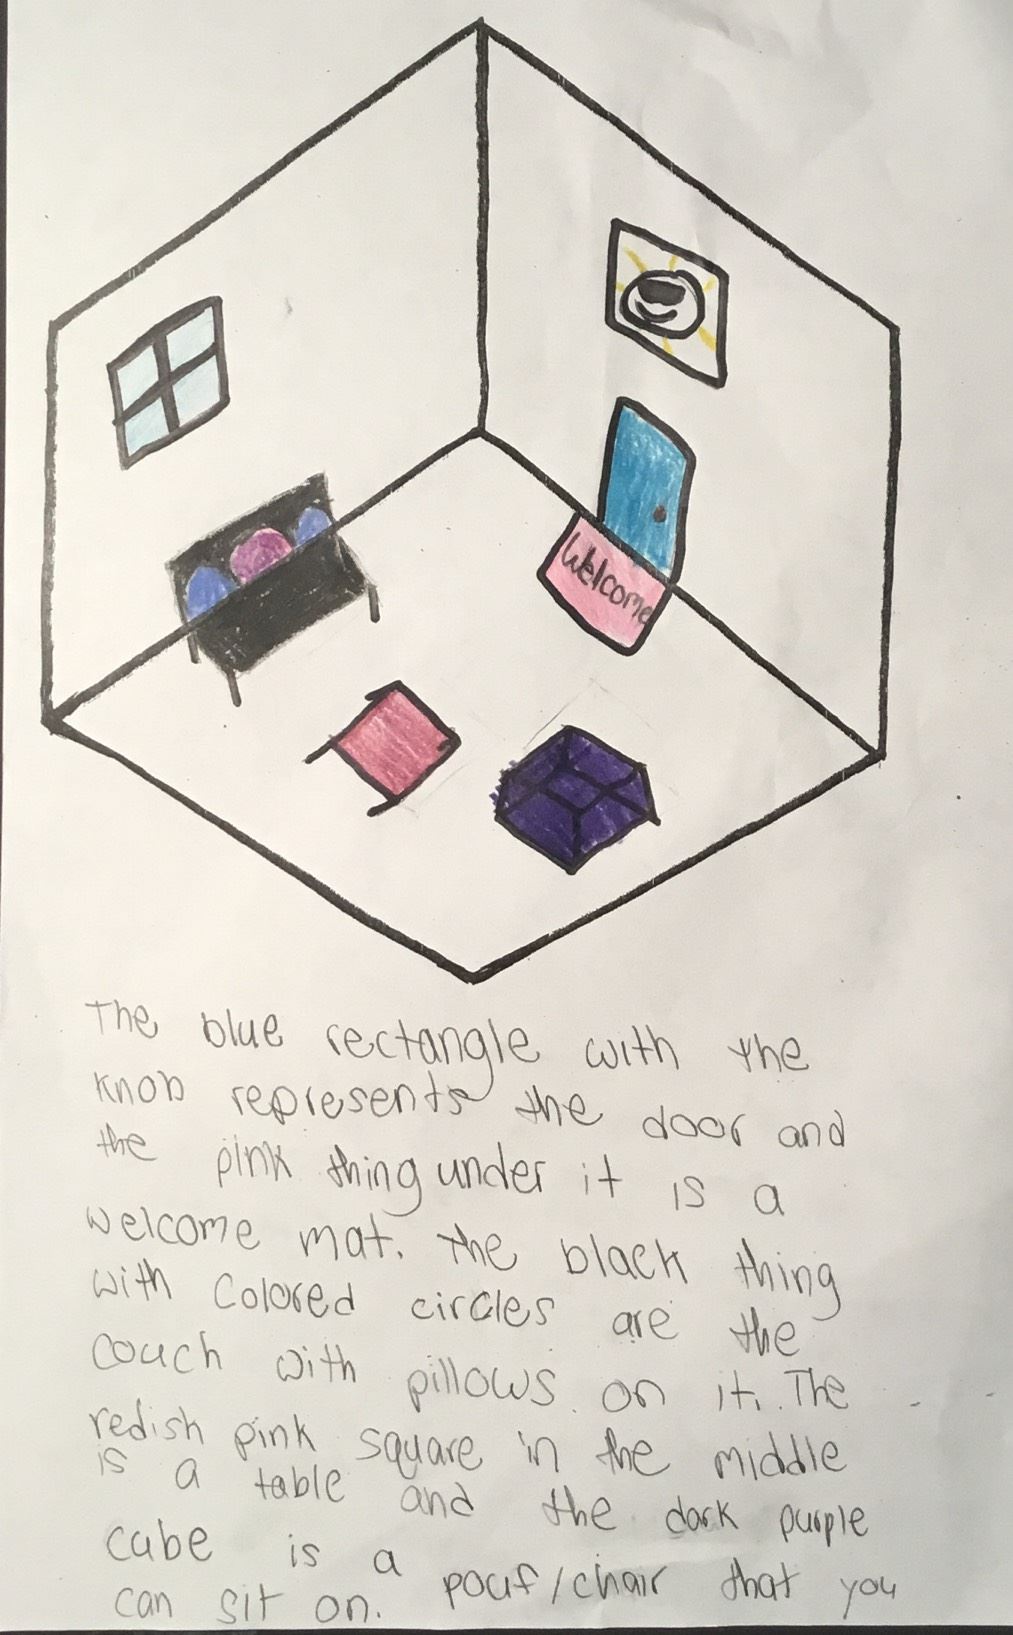 Welcome
The blue rectangle with the
knob represents the door and
the pink thing under it is a
welcome mat. The black thing
with colored circles are the
couch with pillows on it. The
redish pink square in the middle
is a table and the dark purple
cube is a pouf/chair that you
can sit on.